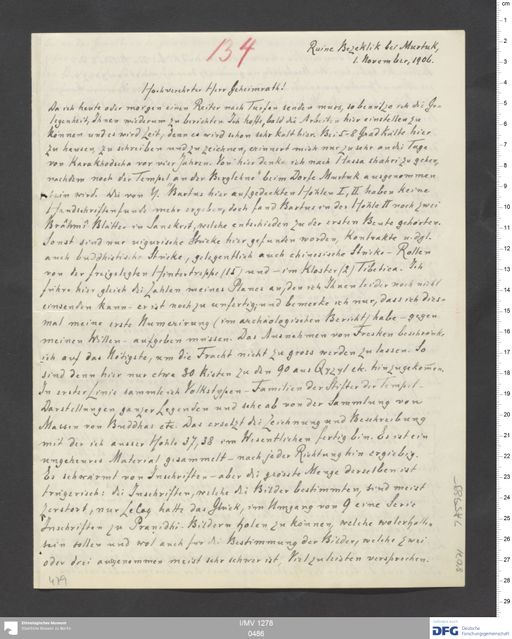 134
Ruine Bezeklik bei Murtuk,
1. November, 1906.
Hochverehrter Herr Geheimrath!
Da ich heute oder morgen einen Reiter nach Turfan senden muss, so benutze ich die Ge-
legenheit, Ihnen wiederum zu berichten. Ich hoffe, bald die Arbeiten hier einstellen zu
können und es wird Zeit, denn es wird schon sehr kalt hier. Bei 5-8 Grad Kälte hier
zu hausen, zu schreiben und zu zeichnen, erinnert mich nur zu sehr an die Tage
von Karakhodscha vor vier Jahren. Von hier denke ich nach Hassa shahri zu gehen,
nachdem noch der Tempel an der Berglehne beim Dorfe Murtuk ausgenommen
sein wird. Die von H. Bartus hier aufgedeckten Höhlen I, II haben keine
Handschriftenfunde mehr ergeben, doch fand Bartus in der Höhle II noch zwei
Brāhmī Blätter in Sanskrit, welche entschieden zu der ersten Beute gehörten.
Sonst sind nur uigurische Stücke hier gefunden worden, Kontrakte u. dgl.
auch buddhistische Stücke, gelegentlich auch chinesische Stücke - Rollen
von der freigelegten Hintertreppe (15) und - im Kloster (2) Tibetica. Ich
führe hier gleich die Zahlen meines Planes an, den ich Ihnen leider noch nicht
einsenden kann - er ist noch zu unfertig, und bemerke ich nur, dass ich dies-
mal meine erste Numerirung (im archäologischen Bericht) habe - gegen
meinen Willen - aufgeben müssen. Das Ausnehmen von Fresken beschränke
ich auf das Nötigste, um die Fracht nicht zu gross werden zu lassen. So
sind denn hier nur etwa 30 Kisten zu den 90 aus Qyzyl etc. hinzugekommen.
In erster Linie sammle ich Volkstypen - Familien der Stifter der Tempel -
Darstellungen ganzer Legenden und sehe ab von der Sammlung von
Massen von Buddhas etc. Das ersetzt die Zeichnung und Beschreibung
mit der ich ausser Höhle 37, 38 im Wesentlichen fertig bin. Es ist ein
ungeheures Material gesammelt - nach jeder Richtung hin ergiebig.
Es schwärmt von Inschriften - aber die grösste Menge derselben ist
trügerisch: die Inschriften, welche die Bilder bestimmten, sind meist
zerstört, nur LeCoq hatte das Glück, im Umgang von 9 eine Serie
Inschriften zu Pranidhi-Bildern holen zu können, welche wolerhalten
sein sollen und wol auch für die Bestimmung der Bilder, welche zwei
oder drei ausgenommen meist sehr schwer ist, viel zu leisten versprechen.
479
Ethnologisches Museum
Staatliche Museen zu Berlin
I/MV 1278
0486
DFG Deutsche
Forschungsgemeinschaft